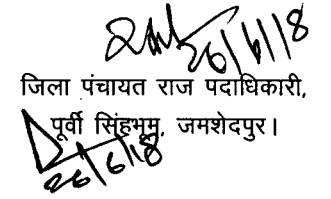 26/6/18
जिला पंचायत राज पदाधिकारी,
पूर्वी सिंहभूम, जमशेदपुर।
26/6/18